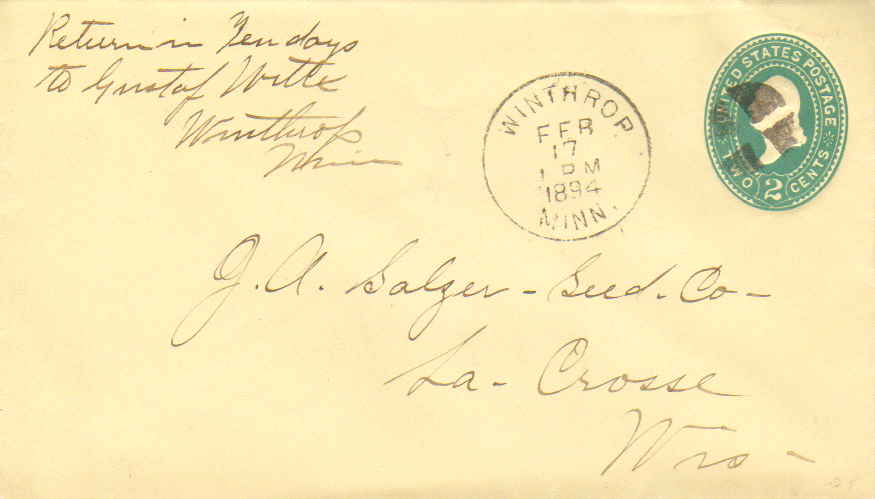 Return in Ten days
to Gustaf Witte
Winthrop
Minn
WINTHROP
FEB
17
1 PM
1894
MINN.
UNITED STATES POSTAGE
TWO 2 CENTS
J. A. Salzer - Seed. Co -
La - Crosse
Wis -